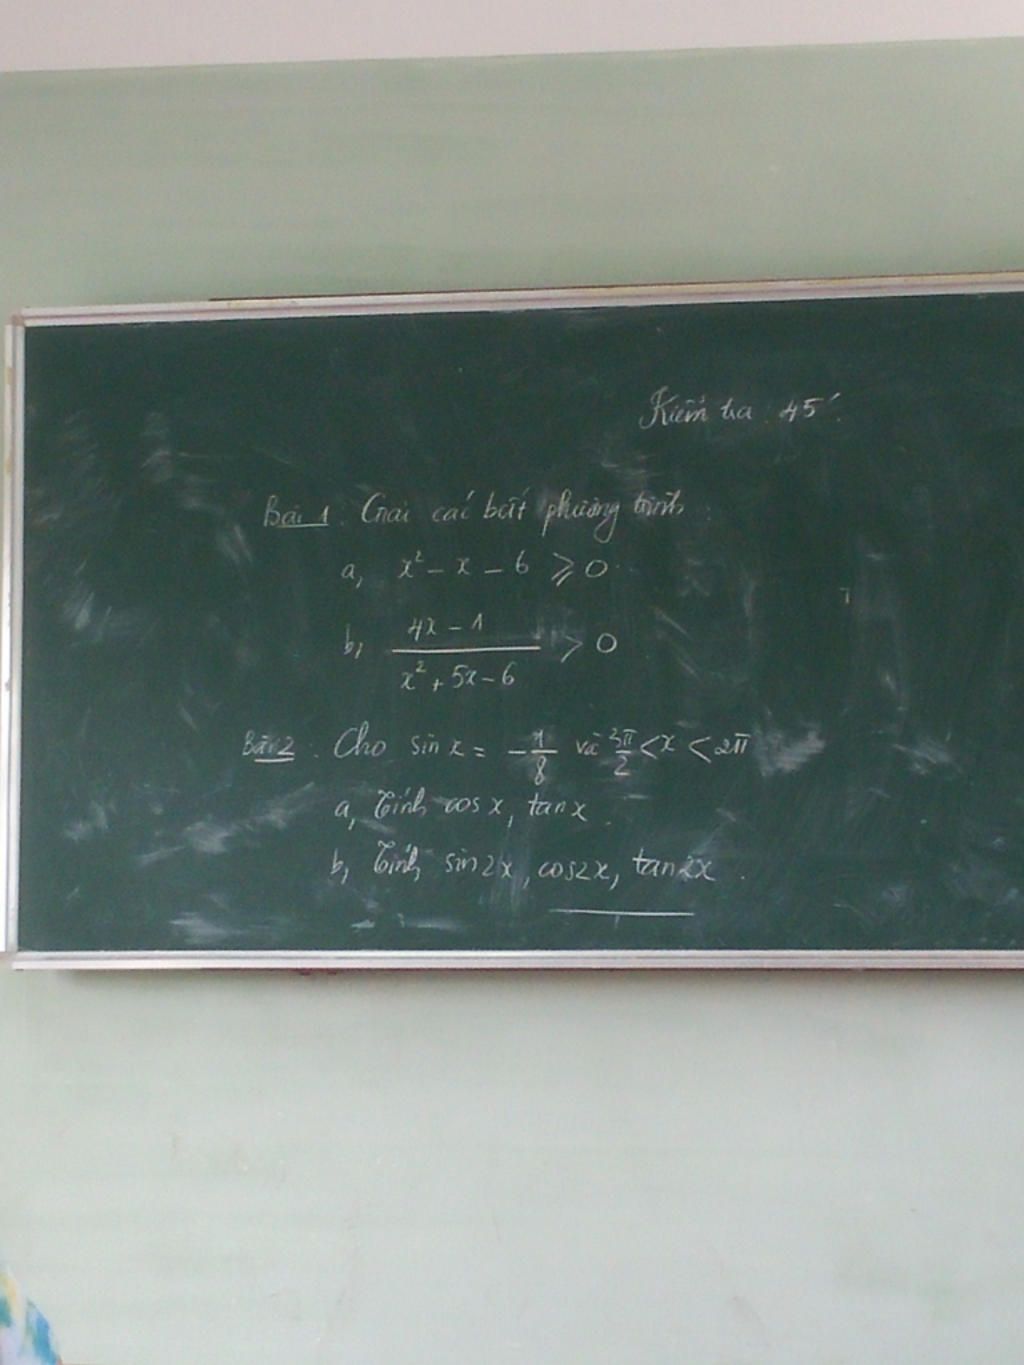 Kiểm tra 45'
Bài 1 Giải các bất phương trình
a, x² - x - 6 ⩾ 0
b, (4x - 1)/(x² + 5x - 6) > 0
Bài 2: Cho sin x = -1/8 và 3π/2 < x < 2π
a, Tính cos x, tan x.
b, Tính sin2x, cos2x, tan2x.